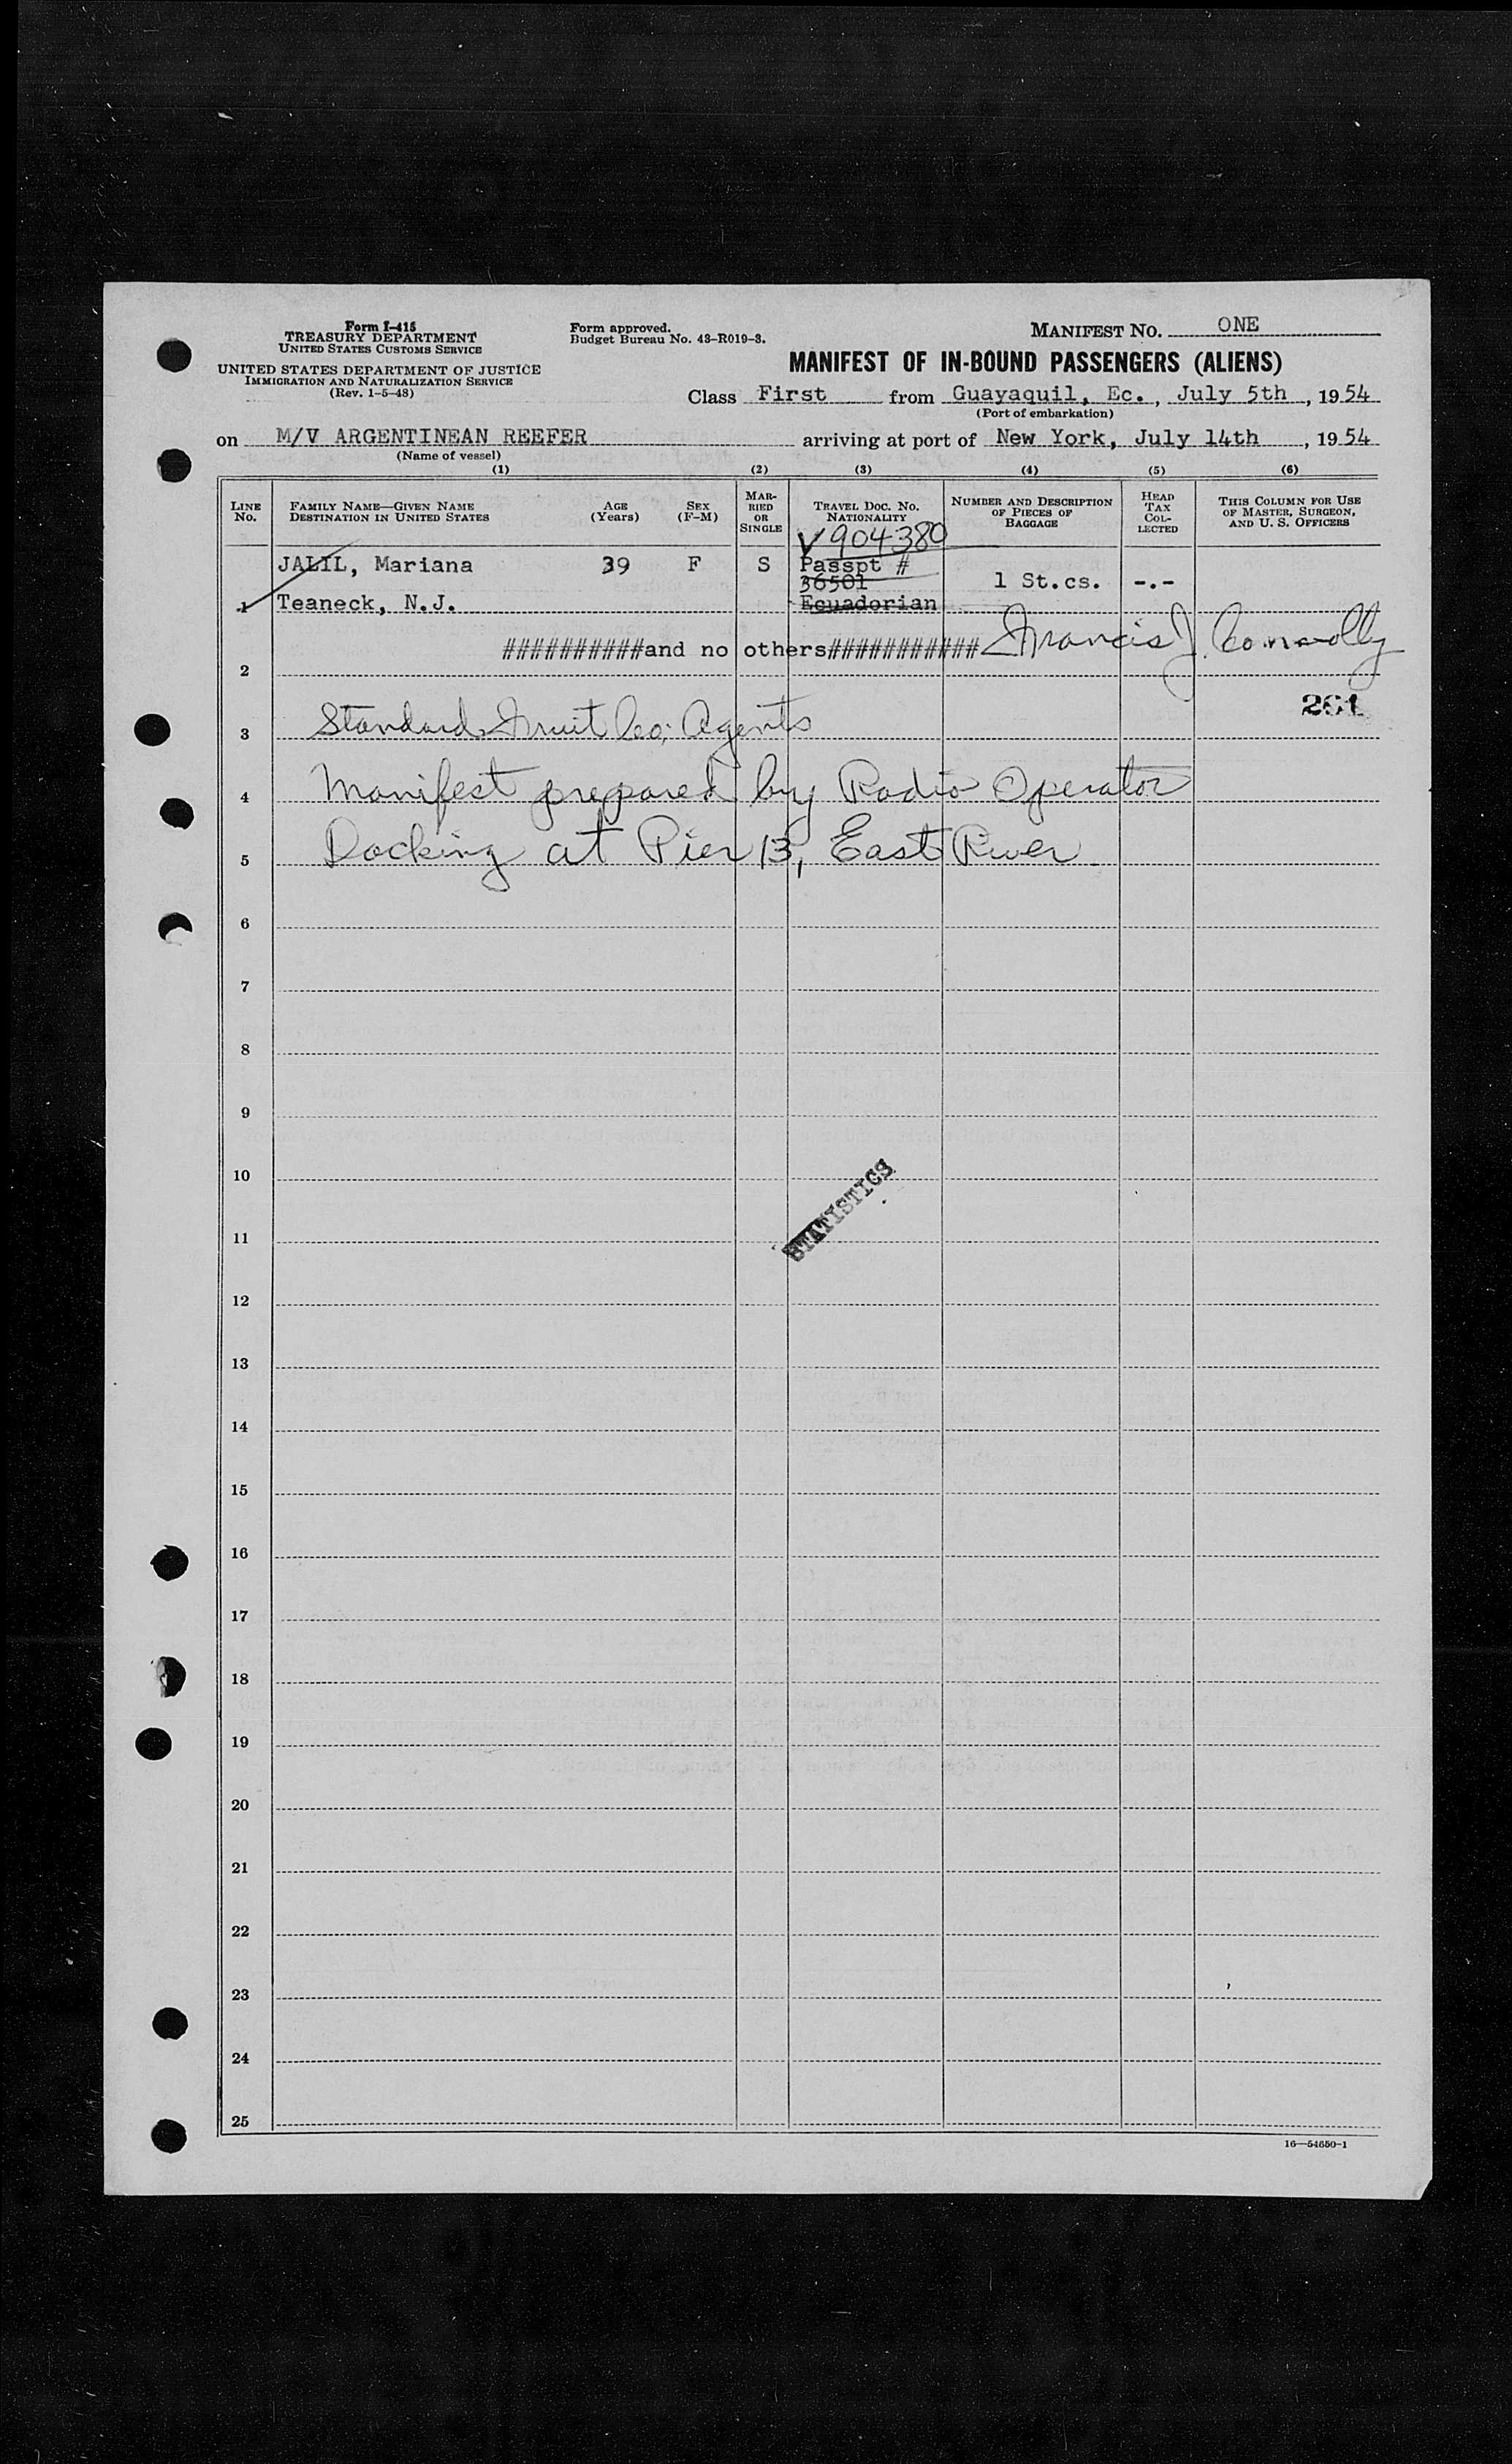 Form I-415
TREASURY DEPARTMENT
UNITED STATES CUSTOMS SERVICE
UNITED STATES DEPARTMENT OF JUSTICE
IMMIGRATION AND NATURALIZATION SERVICE
(Rev. 1-5-48)
Form approved.
Budget Bureau No. 43-R019-3.
MANIFEST NO. ONE
MANIFEST OF IN-BOUND PASSENGERS (ALIENS)
Class First from Guayaquil, Ec., July 5th, 1954
(Port of embarkation)
on M/V ARGENTINEAN REEFER arriving at port of New York, July 14th, 1954
(Name of vessel)
(1) (2) (3) (4) (5) (6)
LINE No.
FAMILY NAME—GIVEN NAME
DESTINATION IN UNITED STATES
AGE (Years)
SEX (F-M)
MARRIED OR SINGLE
TRAVEL DOC. NO.
NATIONALITY
NUMBER AND DESCRIPTION OF PIECES OF BAGGAGE
HEAD TAX COLLECTED
THIS COLUMN FOR USE OF MASTER, SURGEON, AND U. S. OFFICERS
V 904380
JALIL, Mariana 39 F S Passpt #
36501 1 St.cs. -.-
1 Teaneck, N.J. Ecuadorian
##########and no others########### Francis J. Connolly
2
261
3 Standard Fruit Co; Agents
4 Manifest prepared by Radio Operator
5 Docking at Pier 13, East River
6
7
8
9
10
STATISTICS
11
12
13
14
15
16
17
18
19
20
21
22
23
24
25
16—54650-1